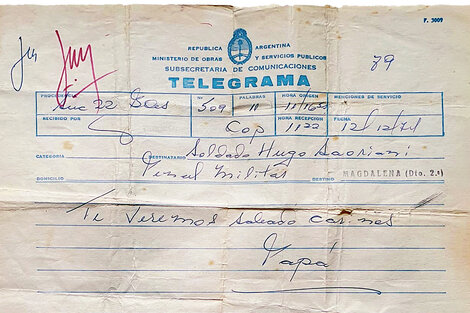 F. 3009
REPUBLICA ARGENTINA
MINISTERIO DE OBRAS Y SERVICIOS PUBLICOS
SUBSECRETARIA DE COMUNICACIONES
TELEGRAMA
79
PROCEDENCIA Nº PALABRAS HORA ORIGEN MENCIONES DE SERVICIO
Suc 22 Bles 509 10
RECIBIDO POR HORA RECEPCION FECHA
Cop 1122 12/12/71
CATEGORIA DESTINATARIO Soldado Hugo
DOMICILIO Penal Militar DESTINO MAGDALENA (Dto. 2ª)
Te Veremos sabado cariños
Papa